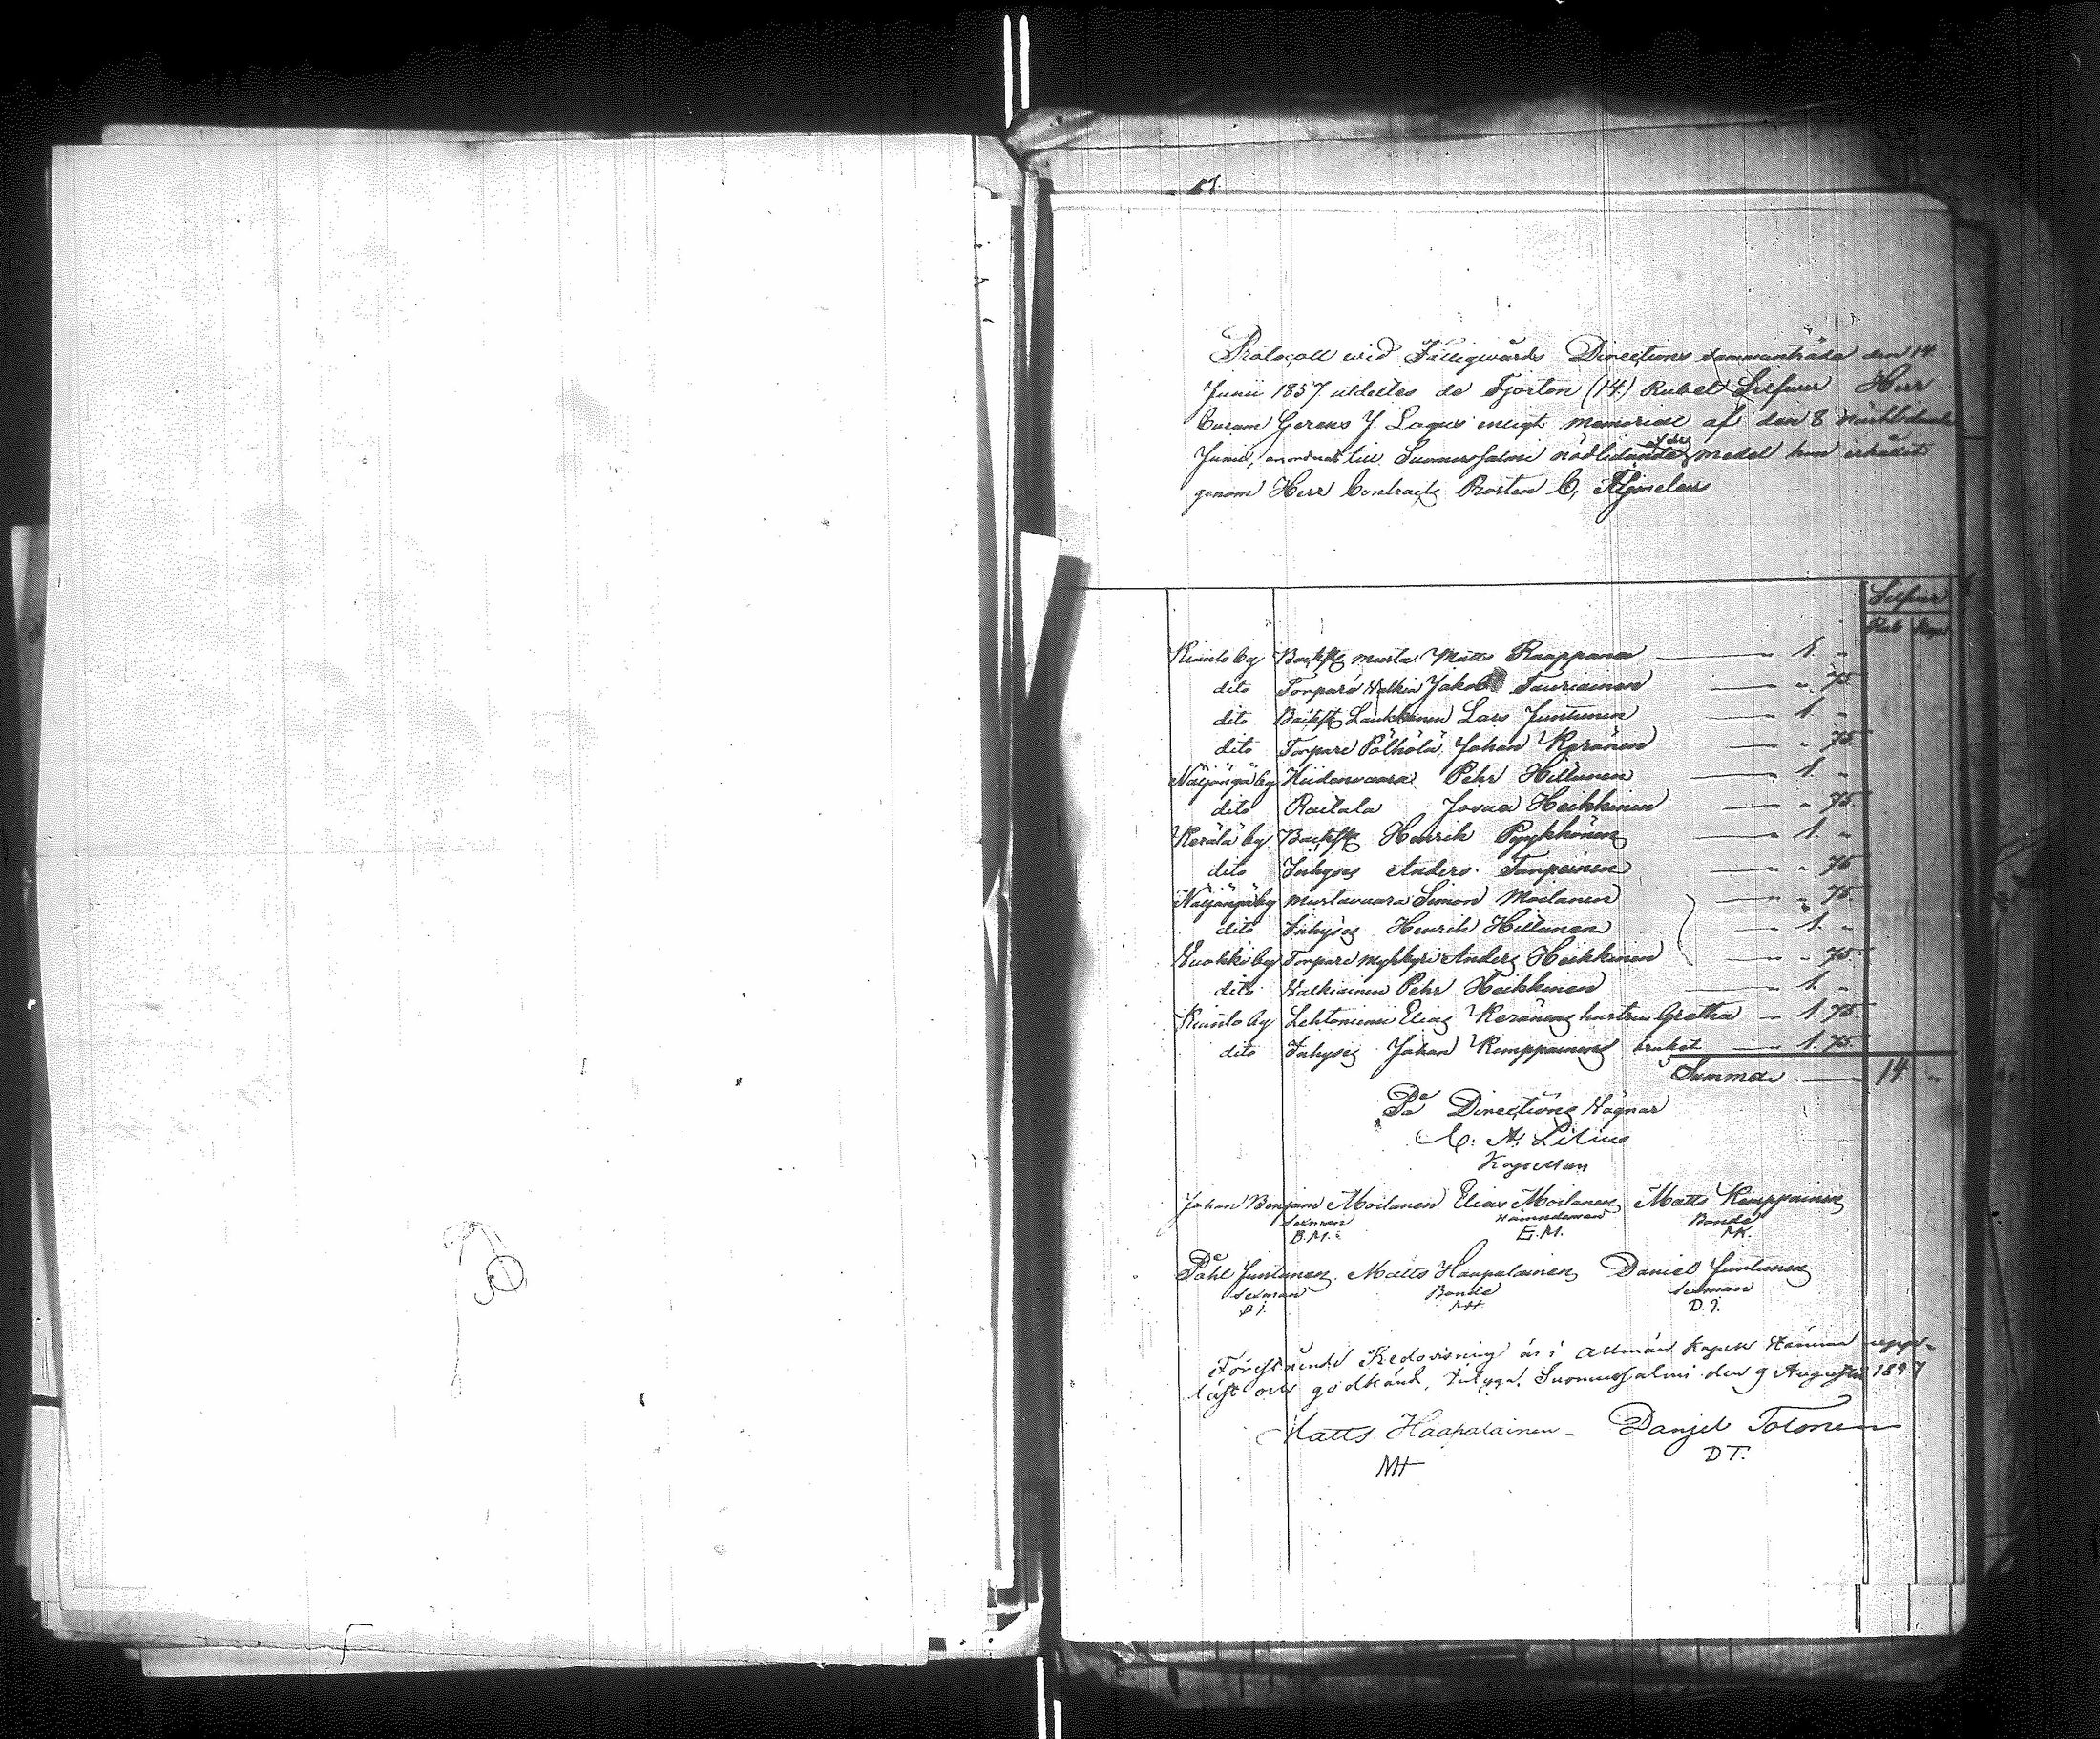 Protocoll wid Fattigwårds Directions sammanträde den 14
Junii 1857 utdeltes de Fjorton (14) Rubel Silfwer Herr
Curam Gerens J. Lagus enligt memorial af den 8 nästledne
Junii, anordnat till Suomussalmi nödlidande af dez medel han erhållit
genom Herr Contracts Prosten C,
Silfwer
Rub Kop
Kianto by Backst Musta Matts Raappana — 1. "
dito Torpare Walkia Jakob Tauriainen — " 75
dito Backst Laukkanen Lars Juntunen — 1. "
dito Torpare Pölhölä Johan Keränen — " 75.
Näljängä by Hiidenvaara Pehr Hiltunen — 1. "
dito Raitala Josua Heikkinen — " 75
Kerälä by Backst Henrik Pyykkönen — 1. "
dito Inhyses Anders Tanpeinen — " 75.
Näljängä by Mustavaara Simon Moilanen — " 75
dito Inhyses Henrik Hiltunen — 1. "
Vuokki by Torpare Mykkyri Anders Heikkinen — " 75
dito Valkiainen Pehr Heikkinen — 1. "
Kianto by Lehtoniemi Elias Keränens hustru Gretha — 1. 75.
dito Inhyses Johan Kemppainens — 1. 75.
Summa — 14 "
På Directions Wägnar
C. A. Lilius
Kapellan
Johan Benjam Moilanen Elias Moilanen Matts Kemppainen
Sexman Nämndeman Bonde
B.M. E.M. MK.
Påhl Juntunen Matts Haapalainen Daniel Juntunen
Sexman Bonde Sexman
P J. MH D. J.
Förestående Redovisning är i Allmän Kapell Stämma upp-
läst och godkänd, intyga. Suomussalmi den 9 Augusti 1857
Matts Haapalainen - Danjel Tolonen
MH DT.